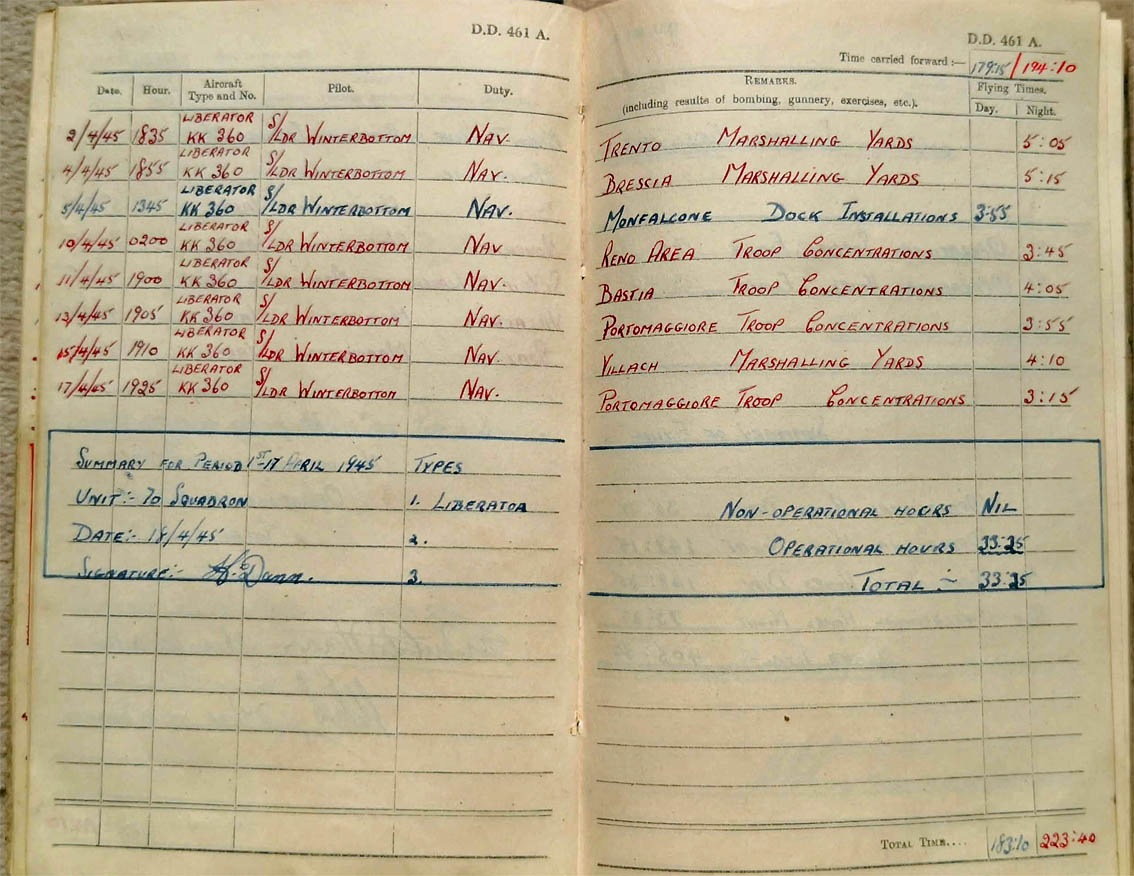 D.D. 461 A.
Date. Hour. Aircraft Type and No. Pilot. Duty.
2/4/45 1835 LIBERATOR KK 360 S/LDR WINTERBOTTOM NAV.
4/4/45 1855 LIBERATOR KK 360 S/LDR WINTERBOTTOM NAV.
5/4/45 1345 LIBERATOR KK 360 S/LDR WINTERBOTTOM NAV.
10/4/45 0200 LIBERATOR KK 360 S/LDR WINTERBOTTOM NAV
11/4/45 1900 LIBERATOR KK 360 S/LDR WINTERBOTTOM NAV.
13/4/45 1905 LIBERATOR KK 360 S/LDR WINTERBOTTOM NAV.
15/4/45 1910 LIBERATOR KK 360 S/LDR WINTERBOTTOM NAV.
17/4/45 1925 LIBERATOR KK 360 S/LDR WINTERBOTTOM NAV.
SUMMARY FOR PERIOD 1ST-17 APRIL 1945 TYPES
UNIT:- 70 SQUADRON 1. LIBERATOR
DATE:- 18/4/45 2.
SIGNATURE:- 3.
D.D. 461 A.
Time carried forward:— 179:15/194:10
REMARKS. (including results of bombing, gunnery, exercises, etc.). Flying Times.
Day. Night.
TRENTO MARSHALLING YARDS 5:05
BRESCIA MARSHALLING YARDS 5:15
MONFALCONE DOCK INSTALLATIONS 3:55
RENO AREA TROOP CONCENTRATIONS 3:45
BASTIA TROOP CONCENTRATIONS 4:05
PORTOMAGGIORE TROOP CONCENTRATIONS 3:55
VILLACH MARSHALLING YARDS 4:10
PORTOMAGGIORE TROOP CONCENTRATIONS 3:15
NON-OPERATIONAL HOURS NIL
OPERATIONAL HOURS 33:25
TOTAL :- 33:25
TOTAL TIME.... 183:10 223:40